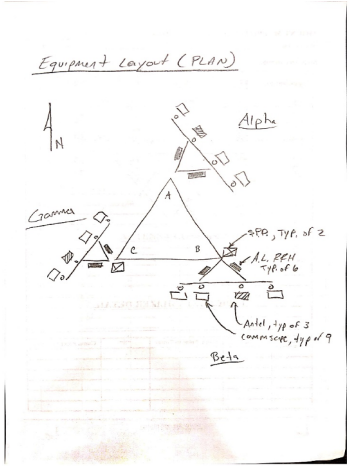 Equipment Layout (PLAN)
N
Alpha
A
Gamma
C
B
TYP. of 2
A.L. RRH
TYP. of 6
Antel, typ of 3
Commscope, typ of 9
Beta